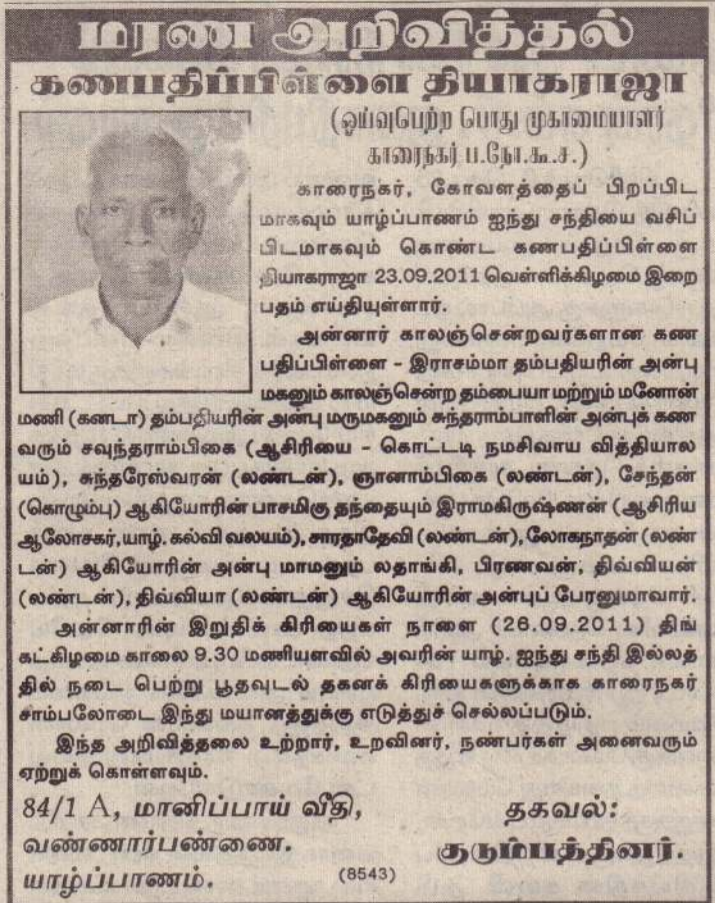 மரண அறிவித்தல்
கணபதிப்பிள்ளை தியாகராஜா
(ஓய்வுபெற்ற பொது முகாமையாளர்
காரைநகர் ப.நோ.கூ.ச.)
காரைநகர், கோவளத்தைப் பிறப்பிட
மாகவும் யாழ்ப்பாணம் ஐந்து சந்தியை வசிப்
பிடமாகவும் கொண்ட கணபதிப்பிள்ளை
தியாகராஜா 23.09.2011 வெள்ளிக்கிழமை இறை
பதம் எய்தியுள்ளார்.
அன்னார் காலஞ்சென்றவர்களான கண
பதிப்பிள்ளை - இராசம்மா தம்பதியரின் அன்பு
மகனும் காலஞ்சென்ற தம்பையா மற்றும் மனோன்
மணி (கனடா) தம்பதியரின் அன்பு மருமகனும் சுந்தராம்பாளின் அன்புக் கண
வரும் சவுந்தராம்பிகை (ஆசிரியை - கொட்டடி நமசிவாய வித்தியால
யம்), சுந்தரேஸ்வரன் (லண்டன்), ஞானாம்பிகை (லண்டன்), சேந்தன்
(கொழும்பு) ஆகியோரின் பாசமிகு தந்தையும் இராமகிருஷ்ணன் (ஆசிரிய
ஆலோசகர், யாழ். கல்வி வலயம்), சாரதாதேவி (லண்டன்), லோகநாதன் (லண்
டன்) ஆகியோரின் அன்பு மாமனும் லதாங்கி, பிரணவன், திவ்வியன்
(லண்டன்), திவ்வியா (லண்டன்) ஆகியோரின் அன்புப் பேரனுமாவார்.
அன்னாரின் இறுதிக் கிரியைகள் நாளை (26.09.2011) திங்
கட்கிழமை காலை 9.30 மணியளவில் அவரின் யாழ். ஐந்து சந்தி இல்லத்
தில் நடை பெற்று பூதவுடல் தகனக் கிரியைகளுக்காக காரைநகர்
சாம்பலோடை இந்து மயானத்துக்கு எடுத்துச் செல்லப்படும்.
இந்த அறிவித்தலை உற்றார், உறவினர், நண்பர்கள் அனைவரும்
ஏற்றுக் கொள்ளவும்.
84/1 A, மானிப்பாய் வீதி,
வண்ணார்பண்ணை.
யாழ்ப்பாணம்.
தகவல்:
குடும்பத்தினர்.
(8543)